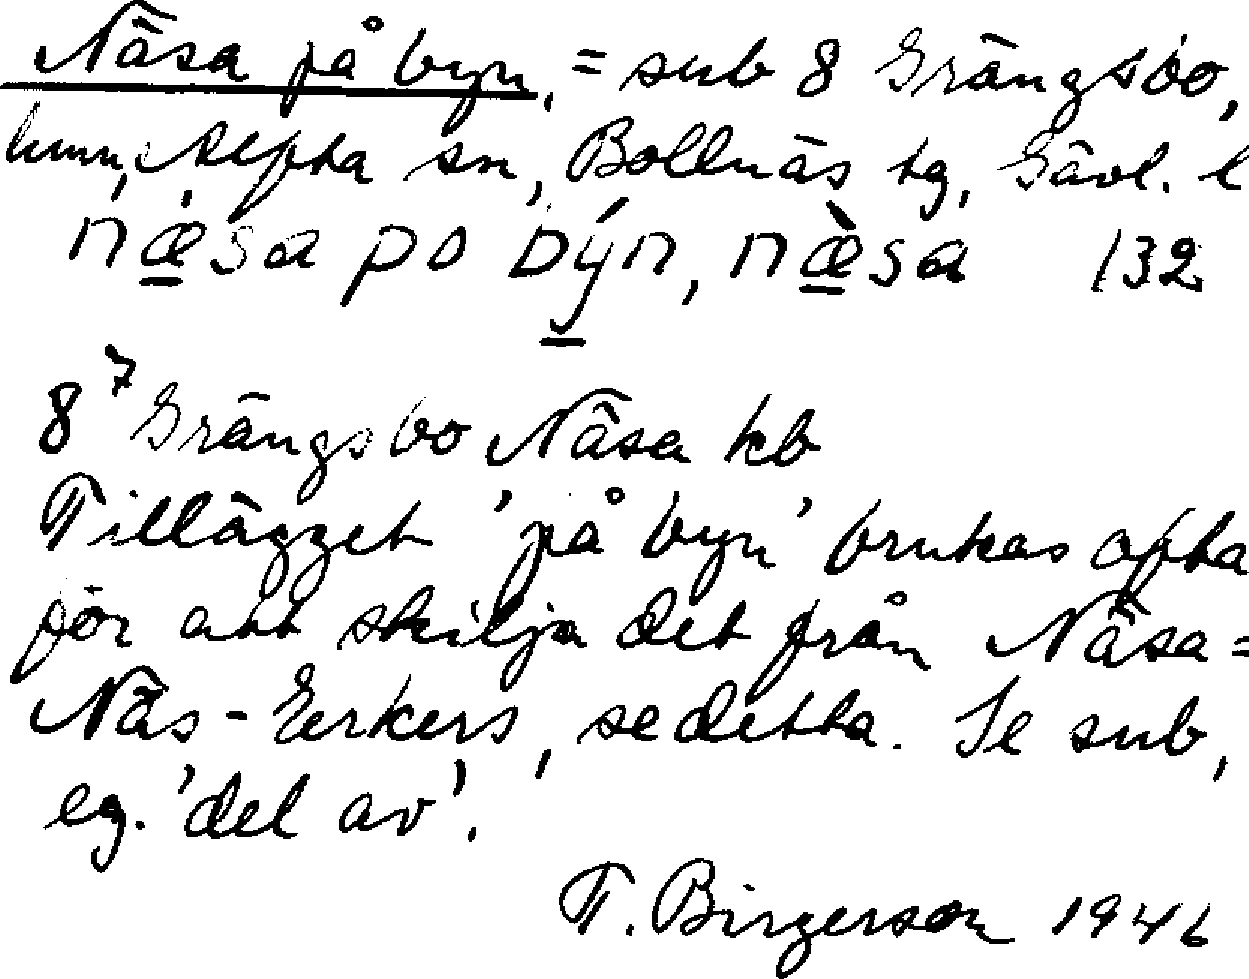 Näsa på byn, = sub 8 Grängsbo,
hmn, Alfta sn, Bollnäs tg, Gävl. l
næ̀sa po býn, næ̀sa 132
8⁷ Grängsbo Näsa kb
Tillägget 'på byn' brukas ofta
för att skilja det från Näsa =
Näs-Eerkers, se detta. Se sub,
eg. 'del av'.
T. Birgerson 1946